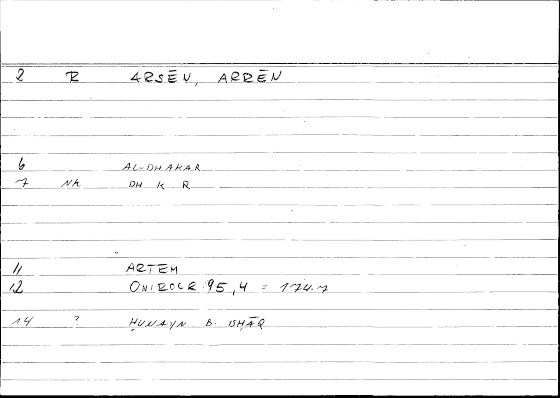 2 R ARSĒN, ARRĒN
6 AL-DHAKAR
7 NK DH K R
11 ARTEM
12 ONIROCR. 95,4 = 174.7
14 ? ḤUNAYN B. ISḤĀQ